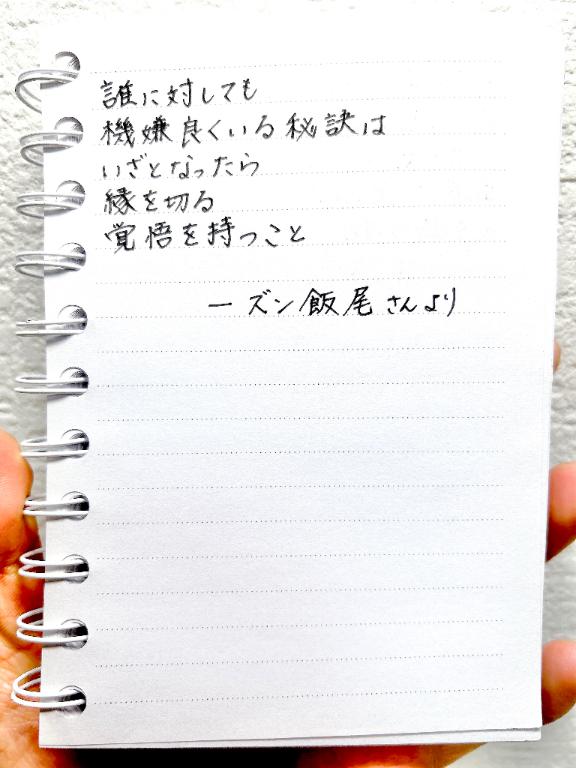 誰に対しても
機嫌良くいる秘訣は
いざとなったら
縁を切る
覚悟を持つこと
ー ズン飯尾さんより